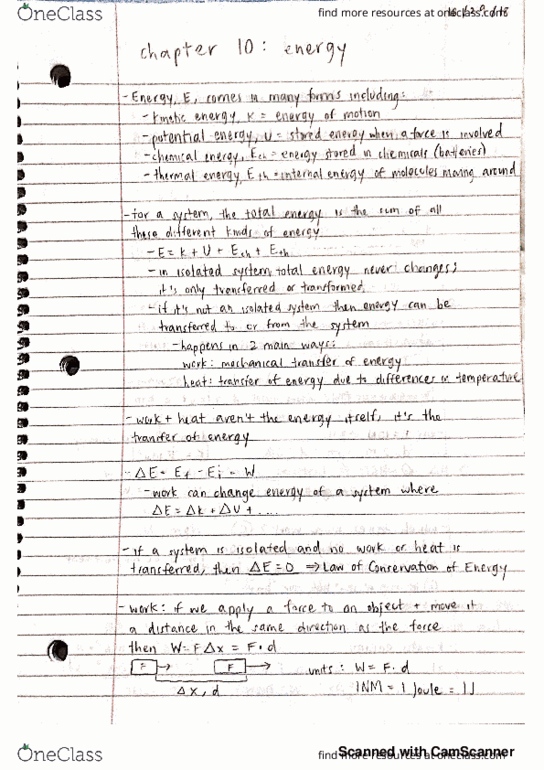 OneClass
find more resources at oneclass.com
chapter 10: energy
- Energy, E, comes in many forms including:
- kinetic energy, K = energy of motion
- potential energy, U = stored energy when a force is involved
- chemical energy, Ech = energy stored in chemicals (batteries)
- thermal energy, Eth = internal energy of molecules moving around
- for a system, the total energy is the sum of all
these different kinds of energy
- E = K + U + Eth + Ech
- in isolated system, total energy never changes;
it's only transferred or transformed
- if it's not an isolated system then energy can be
transferred to or from the system
- happens in 2 main ways:
work: mechanical transfer of energy
heat: transfer of energy due to differences in temperature
- work + heat aren't the energy itself, it's the
transfer of energy
- ΔE = Ef - Ei = W
- work can change energy of a system where
ΔE = ΔK + ΔU + ....
- if a system is isolated and no work or heat is
transferred, then ΔE = 0 ⇒ Law of Conservation of Energy
- work: if we apply a force to an object + move it
a distance in the same direction as the force
then W = F Δx = F • d
F F units: W = F • d
Δx, d 1NM = 1 Joule = 1J
OneClass
find more resources at oneclass.com
Scanned with CamScanner